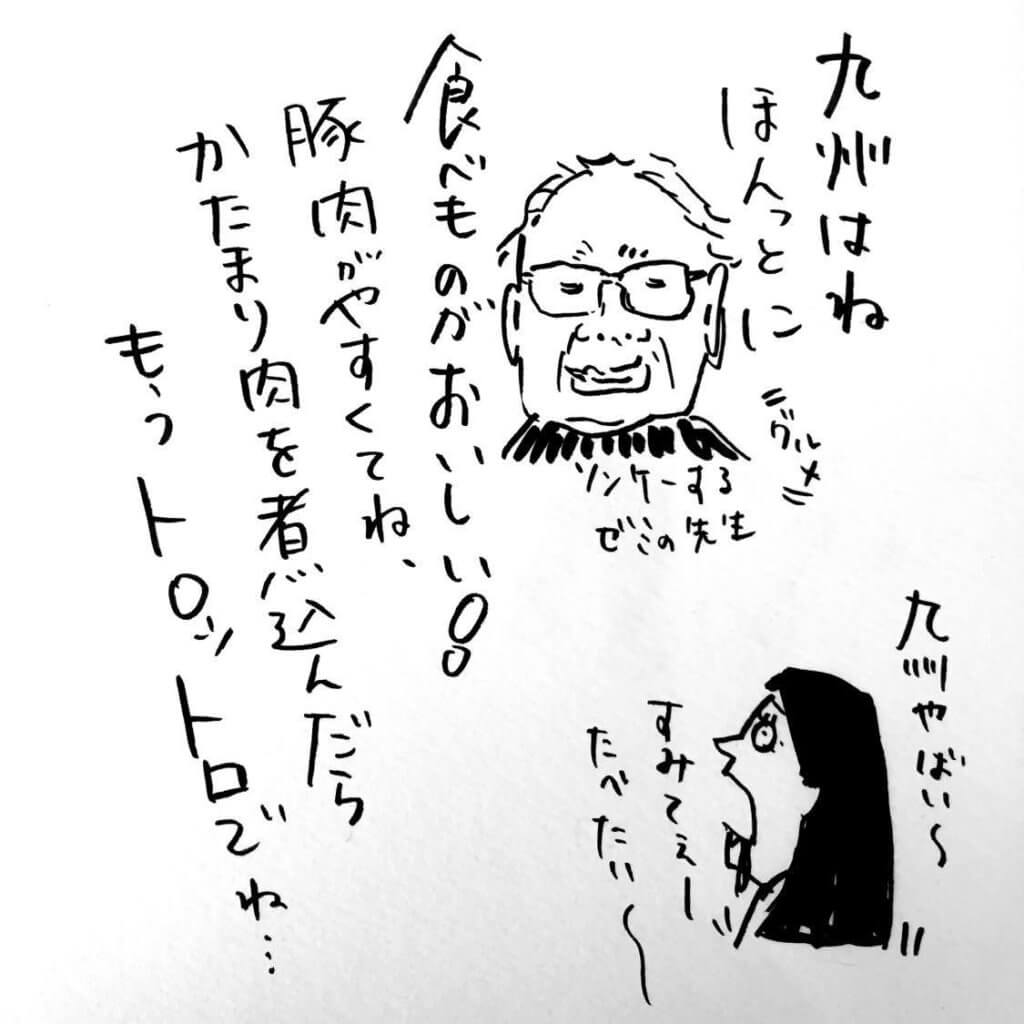 九州はね
ほんっとに
食べものがおいしい!!
豚肉がやすくてね、
かたまり肉を煮込んだら
もうトロットロでね…
グルメ
ソンケーする
ゼミの先生
九州やばい〜
すみてぇー
たべたい〜